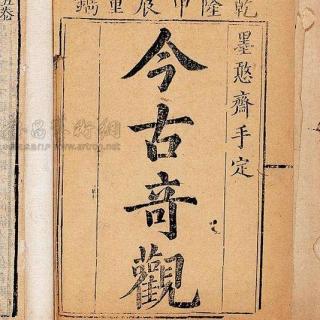 乾隆甲辰重鐫
墨憨齋手定
今古奇觀